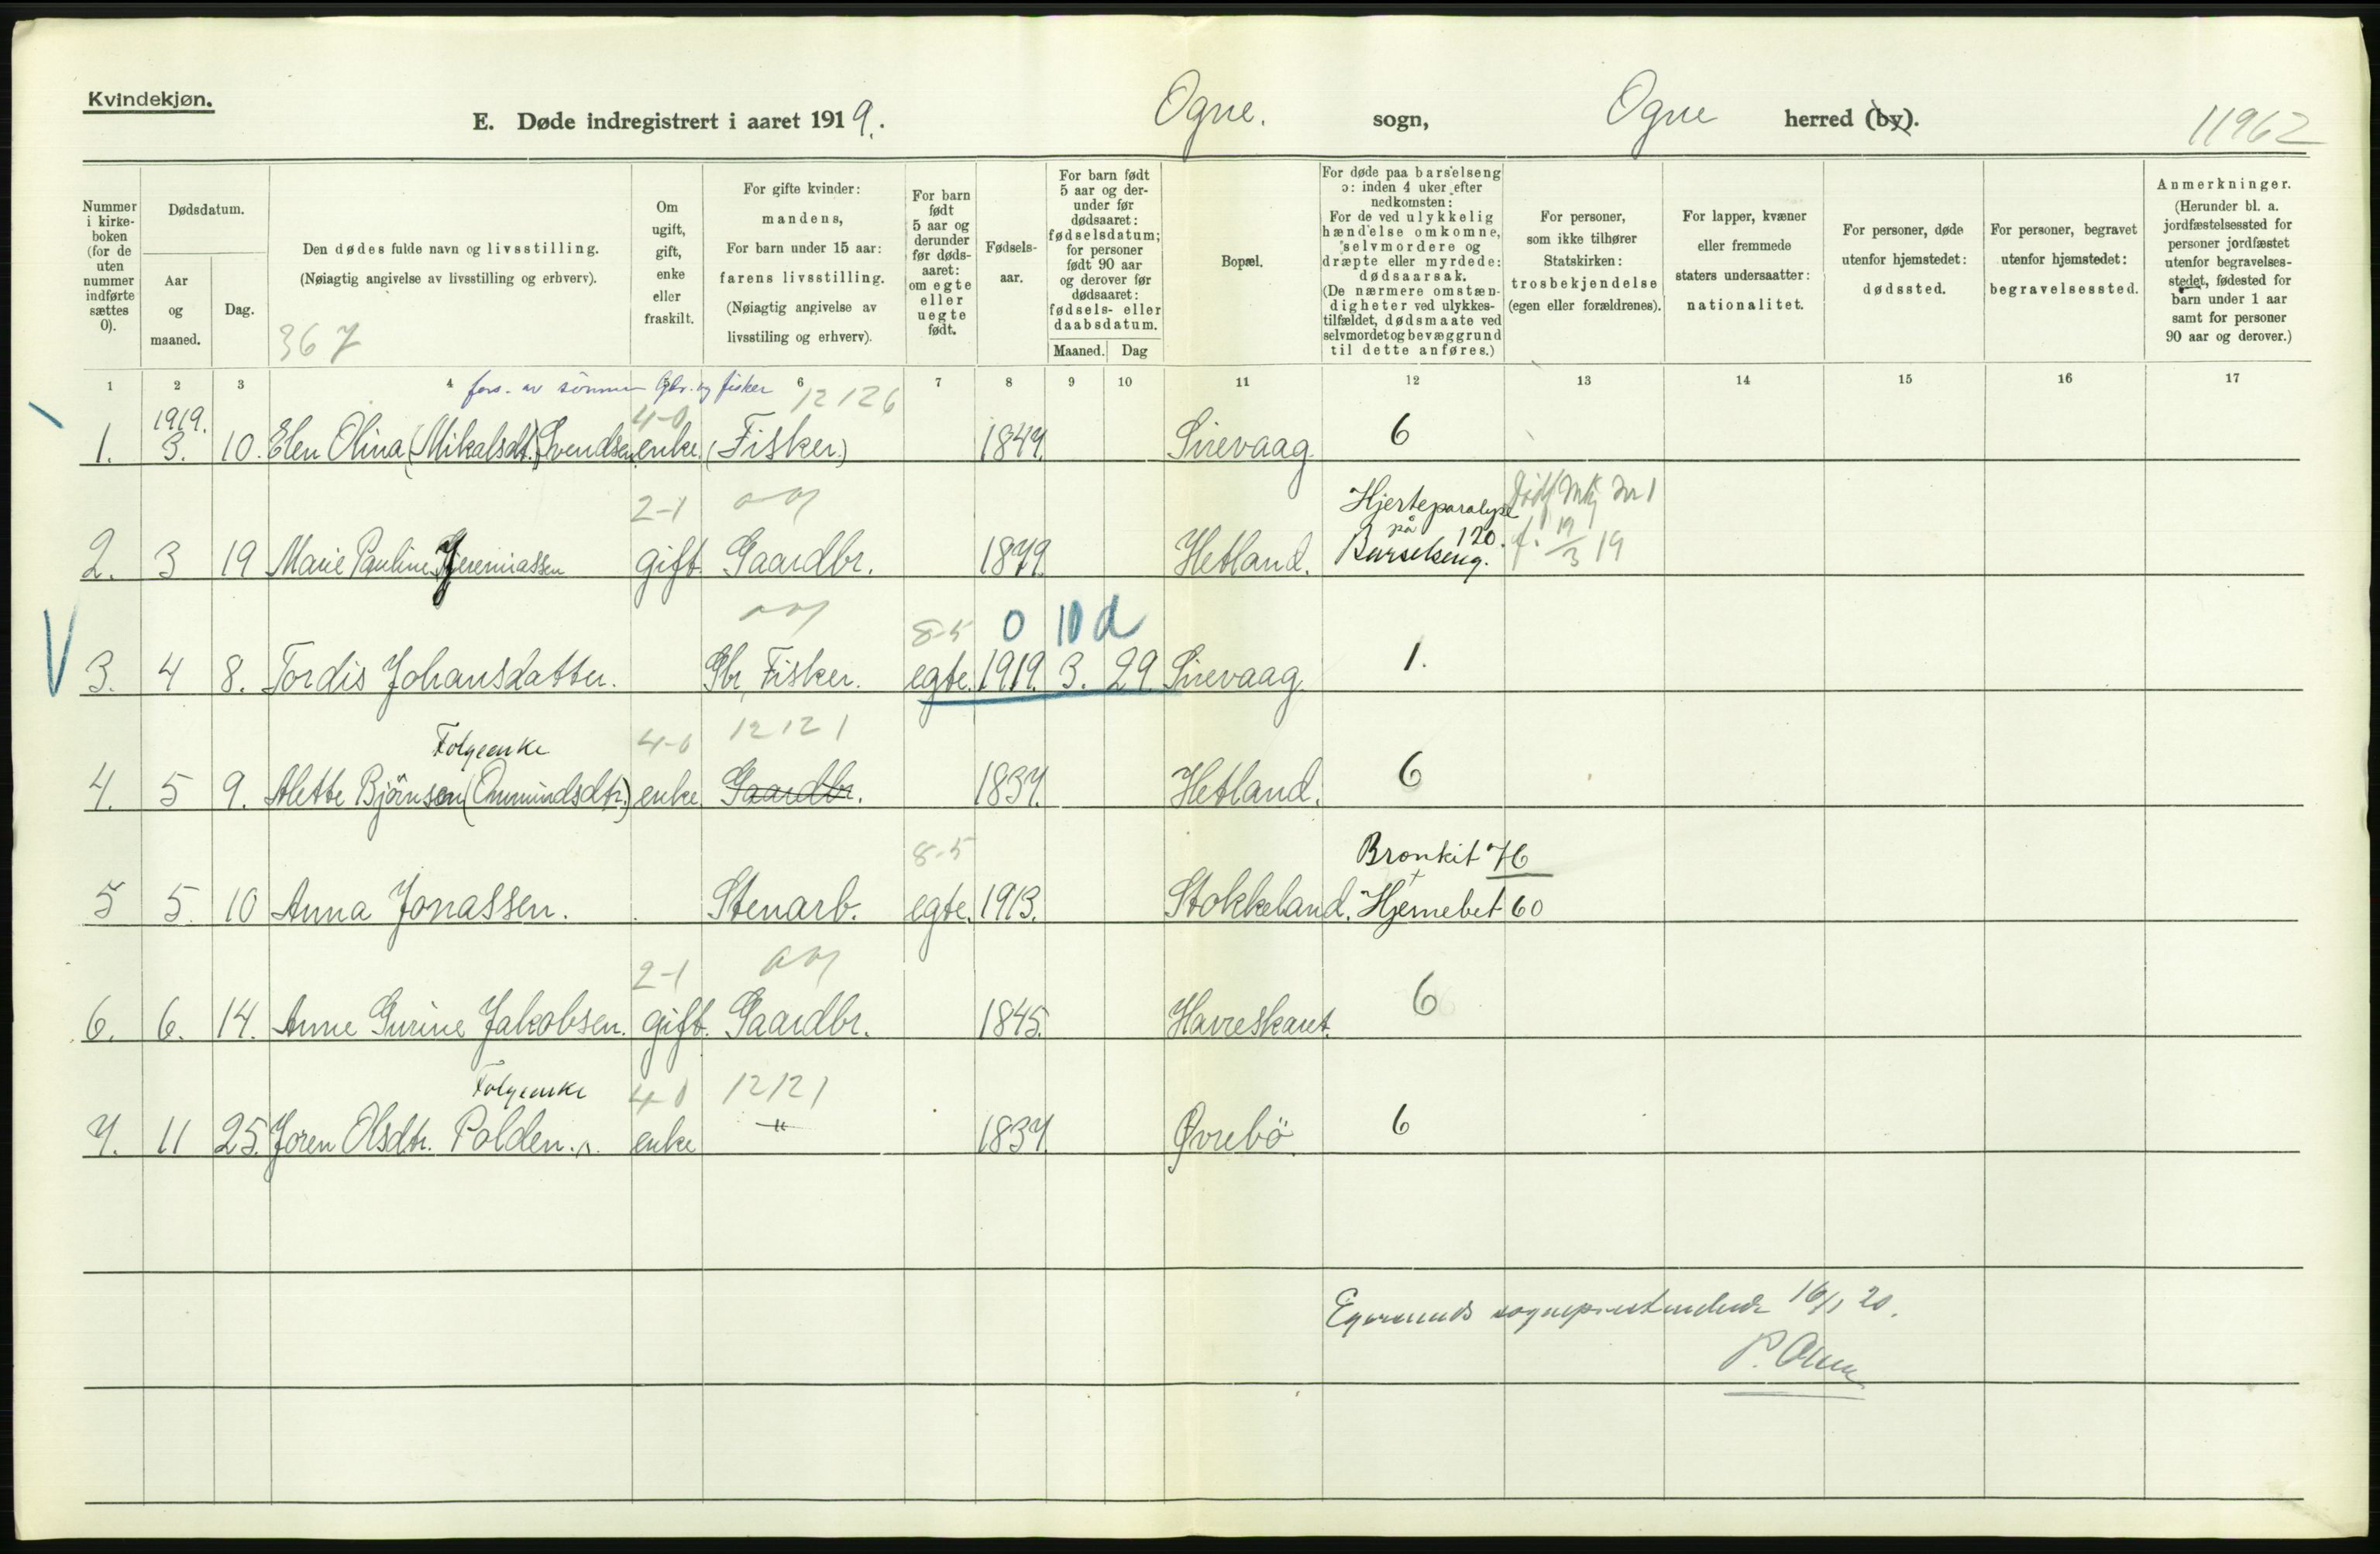 Kvindekjøn.
E. Døde indregistrert i aaret 1919. Ogne. sogn, Ogne herred (by). 11962
Nummer i kirke-boken (for de uten nummer indførte sættes 0).
Dødsdatum.
Aar og maaned.
Dag.
Den dødes fulde navn og livsstilling.
(Nøiagtig angivelse av livsstilling og erhverv).
367
Om ugift, gift, enke eller fraskilt.
For gifte kvinder: mandens,
For barn under 15 aar: farens livsstilling.
(Nøiagtig angivelse av livsstiling og erhverv).
For barn født 5 aar og derunder før døds-aaret: om egte eller uegte født.
Fødsels-aar.
For barn født 5 aar og der-under før dødsaaret: fødselsdatum; for personer født 90 aar og derover før dødsaaret: fødsels- eller daabsdatum.
Maaned. Dag
Bopæl.
For døde paa barselseng ɔ: inden 4 uker efter nedkomsten:
For de ved ulykkelig hændelse omkomne, selvmordere og dræpte eller myrdede: dødsaarsak.
(De nærmere omstæn-digheter ved ulykkes-tilfældet, dødsmaate ved selvmordet og bevæggrund til dette anføres.)
For personer, som ikke tilhører Statskirken: trosbekjendelse (egen eller forældrenes).
For lapper, kvæner eller fremmede staters undersaatter: nationalitet.
For personer, døde utenfor hjemstedet: dødssted.
For personer, begravet utenfor hjemstedet: begravelsessted.
Anmerkninger.
(Herunder bl. a. jordfæstelsessted for personer jordfæstet utenfor begravelses-stedet, fødested for barn under 1 aar samt for personer 90 aar og derover.)
1 2 3 4 5 6 7 8 9 10 11 12 13 14 15 16 17
fors. av sönnen Gbr. og fisker 12126
1919. 4-0
1. 3. 10. Elen Olina (Mikalsdt.) Svendsen enke (Fisker.) 1847. Sirevaag. 6
2-1 Hjerteparalyse Nr 1
på 120.
2. 3 19 Marie Pauline Jeremiassen gift. Gaardbr. 1879. Hetland. Barselseng. f. 19/3 19
8-5 0 10 d
3. 4 8. Tordis Johansdatter. Gbr, Fisker. egte. 1919. 3. 29. Sirevaag. 1.
Folgeenke 4-0 12121
4. 5 9. Alette Björnsen (Ommundsdtr.) enke Gaardbr. 1837. Hetland. 6
8-5 Bronkit 76
5 5. 10 Anna Jonassen. Stenarb. egte. 1913. Stokkeland. Hjernebet 60
2-1
6. 6. 14. Anne Gurine Jakobsen. gift. Gaardbr. 1845. Havreskaret. 6
Folgeenke 4-0 12121
7. 11 25. Joren Olsdtr. Polden. enke " 1837. Øvrebö. 6
Egersunds sogneprestembede 16/1 20.